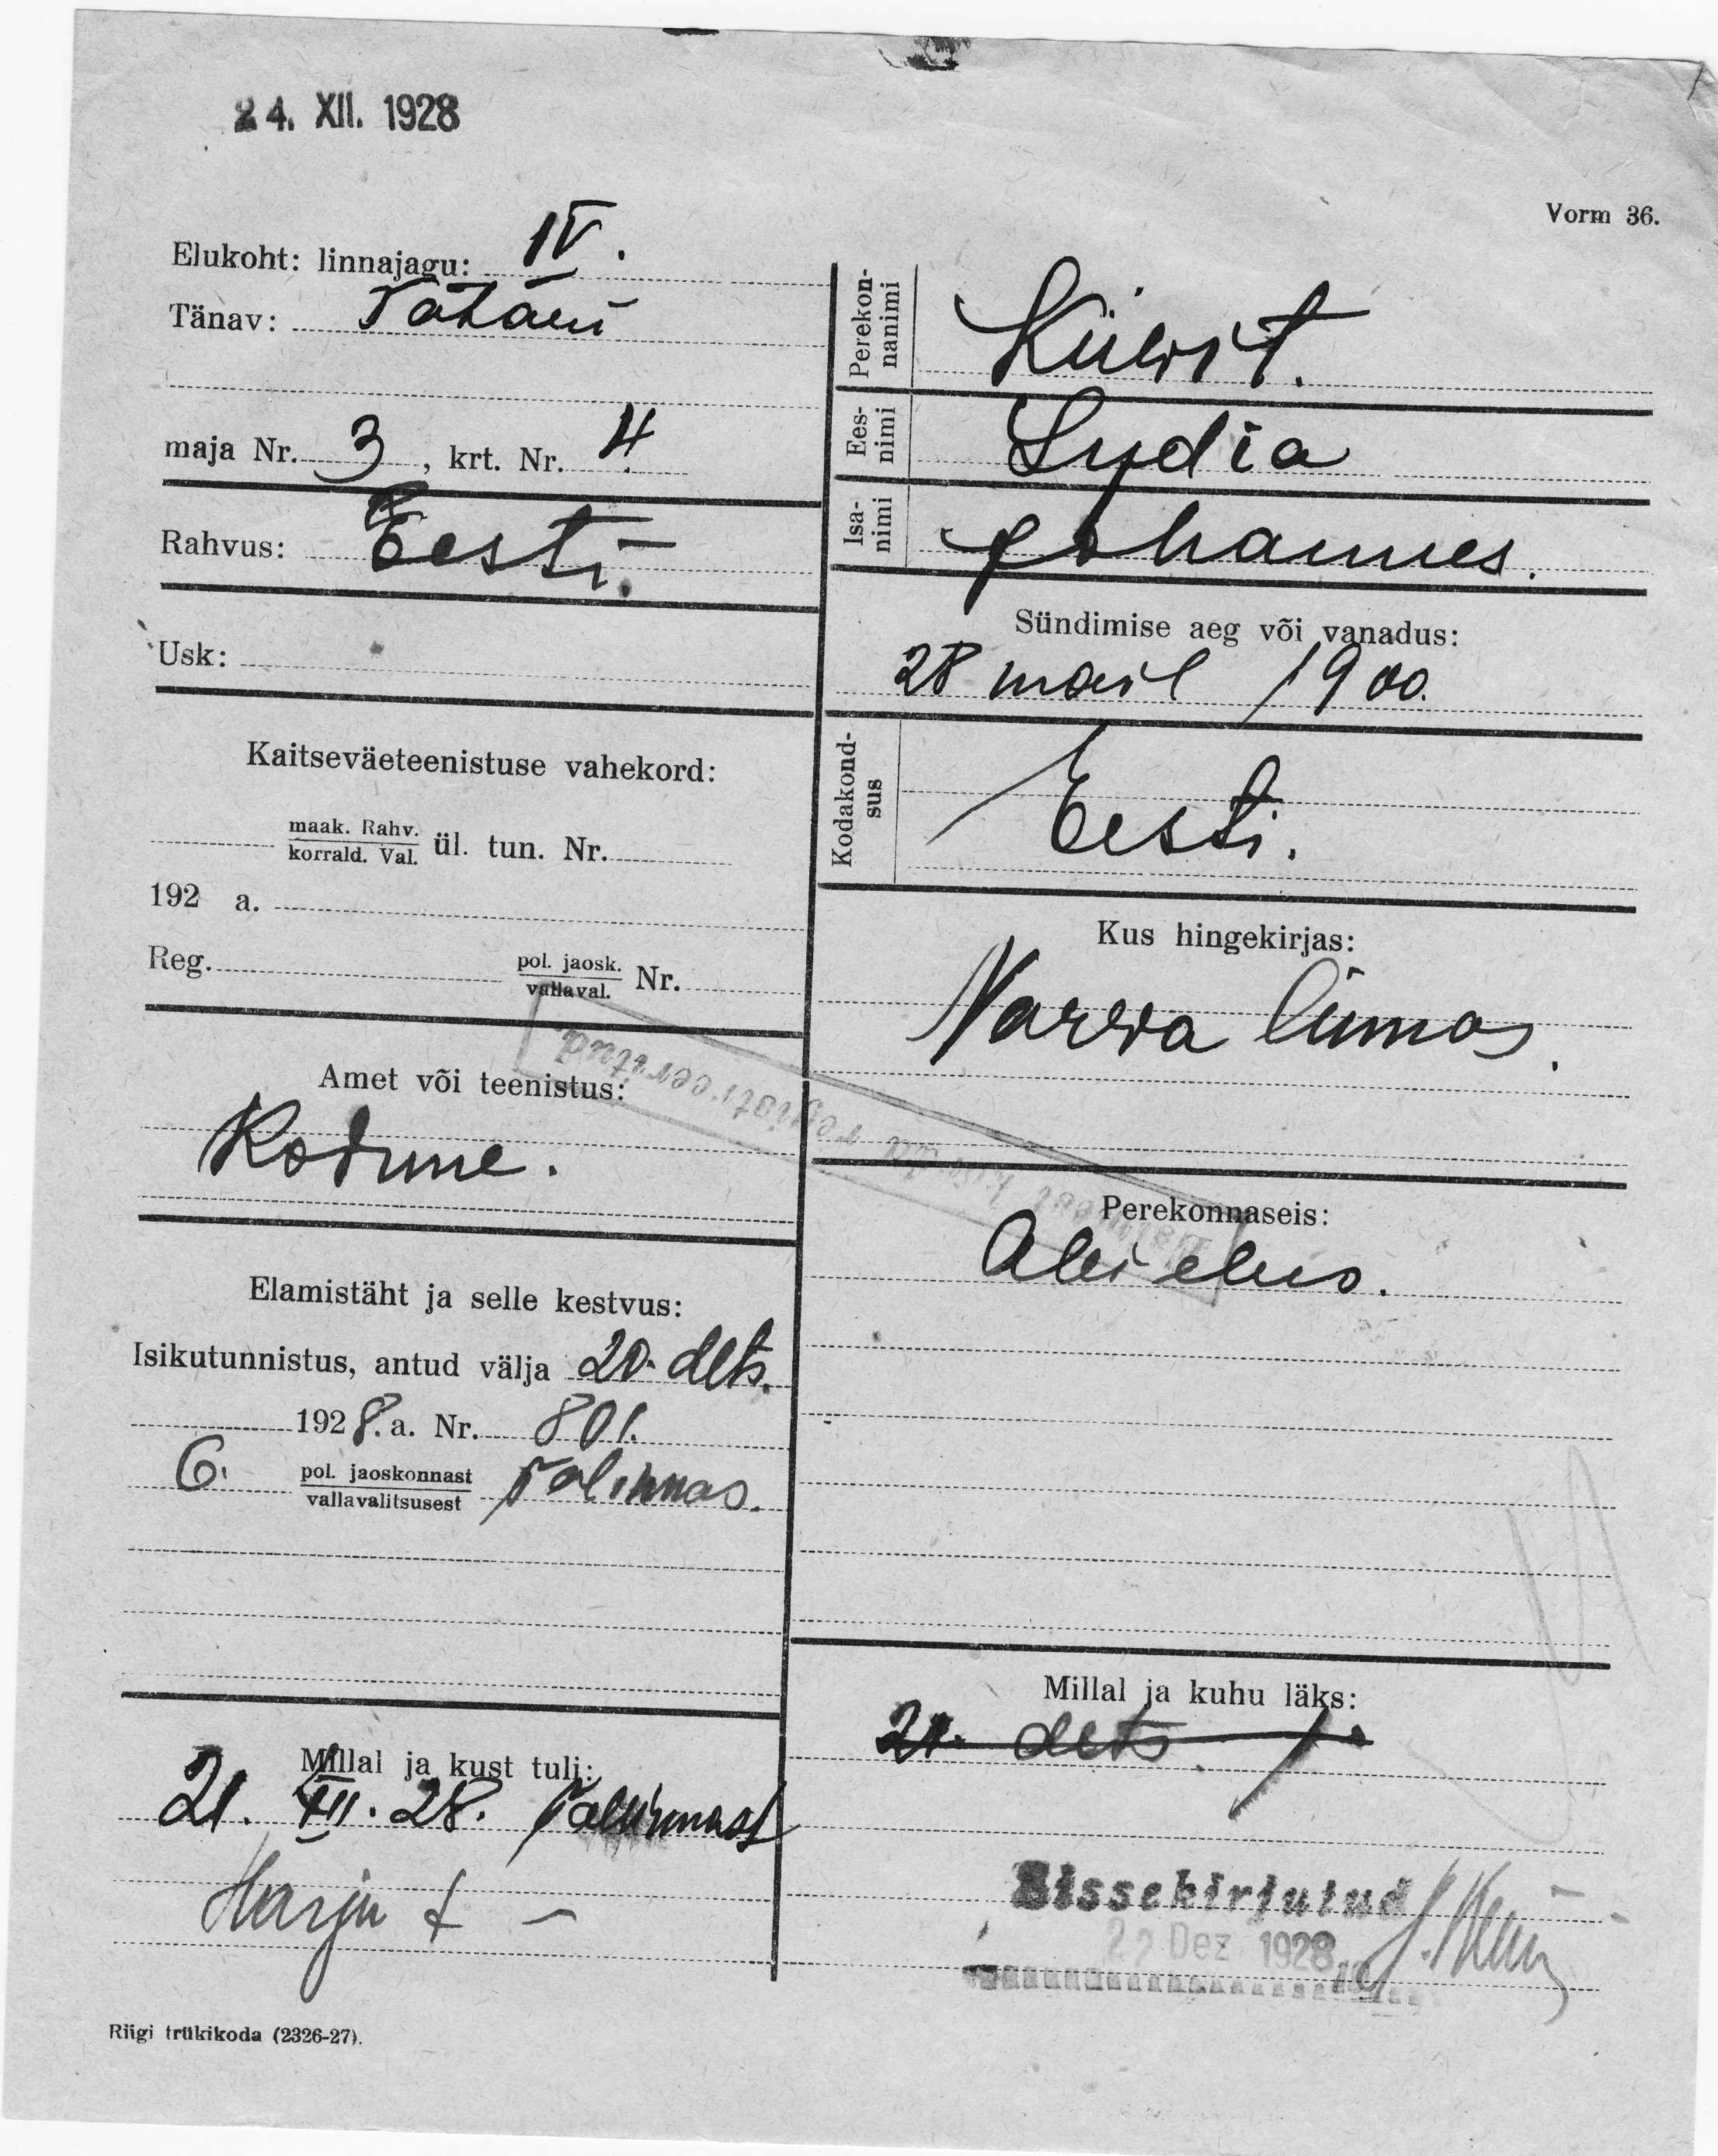 24. XII. 1928
Vorm 36.
Elukoht: linnajagu: IV.
Tänav:
maja Nr. 3, krt. Nr. 4
Rahvus: Eesti.
Usk:
Kaitseväeteenistuse vahekord:
maak. Rahv.
korrald. Val. ül. tun. Nr.
192 a.
Reg. pol. jaosk.
vallaval. Nr.
Amet või teenistus:
Kodune.
Elamistäht ja selle kestvus:
Isikutunnistus, antud välja 20. dets.
1928. a. Nr. 801.
6. pol. jaoskonnast
vallavalitsusest Talinnas.
Millal ja kust tuli:
21. XII. 28. Talinnast
Harju
Riigi trükikoda (2326-27).
Perekon-
nanimi
Külvit.
Ees-
nimi
Lydia
Isa-
nimi
Johannes.
Sündimise aeg või vanadus:
28 mail 1900.
Kodakond-
sus
Eesti.
Kus hingekirjas:
Narva linnas.
registreeritud
Perekonnaseis:
Abielus.
Millal ja kuhu läks:
21. dets.
Sissekirjutud
22 Dez 1928